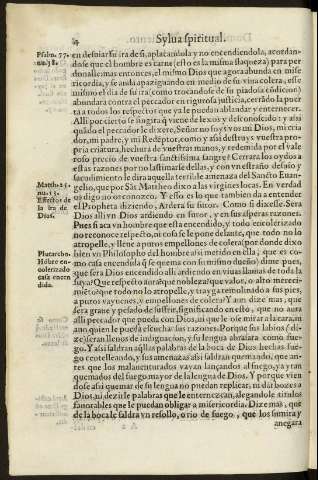 84 Sylua spiritual.
Psalm. 77.
nu. 38.
en desuiar su ira de si, aplacandola y no encendiendola, acordan-
dose que el hombre es carne (esto es la misma flaqueza) para per
donalle: mas entonces, el mismo Dios que agora abunda en mise
ricordia, y se anda apazigando en medio de su vina colera, esse
mismo el dia de su ira (como trocandose de su piadosa códicion)
abundara contra el peccador en rigurosa justicia, cerrádo la puer
ta a todos los respectos que ya le puedan ablandar y enternecer.
Alli por cierto se fingira q̃ viene de lexos y desconoscido: y assi
quádo el peccador le dixere, Señor no soys vos mi Dios, mi cria
dor, mi padre, y mi Redéptor, como y assi destruys vuestra pro-
pria criatura, hechura de vuestras manos, y redemida por el valo
roso precio de vuestra sanctissima sangre? Cerrara los oydos a
estas razones por no lastimarse dellas, y con vn estraño desuio y
Matth. 25.
nu. 12.
sacudimiento le dira aquella terrible amenaza del Sancto Euan-
gelio, que por Sát Mattheo dixo a las virgines locas. En verdad
Effector de
la ira de
Dios.
os digo no os conozco. Y esso es lo que tambien da a entender
el Propheta diziendo, Ardera su furor. Como si dixesse. Sera
Dios alli vn Dios ardiendo en furor, y en sus asperas razones.
Pues si aca vn hombre que esta encendido, y todo encolerizado
ni reconoce respecto, ni cosa se le pone delante, que todo no lo
atropelle, y lleue a puros empellones de colera (por donde dixo
Plutarcho.
Hóbre en-
colerizado
casa encen
dida.
bien vn Philosopho del hombre assi metido en ella, que es co-
mo casa encendida q̃ se quema con su mismo dueño) dime pues,
que sera Dios encendido alli ardiendo en viuas llamas de toda la
suya? Que respecto aura que nobleza? que valor, o alto mereci-
miéto que todo no lo atropelle, y trayga remolinado a sus pies,
a puros vayuenes, y empellones de colera? Y aun dize mas, que
sera graue y pesado de suffrir, significando en esto, que no aura
alli peccador que pueda con Dios, ni que le ose mirar a la cara, ni
aun quien le pueda escuchar sus razones. Porque sus labios (di-
ze) seran llenos de indignacion, y su lengua abrasara como fue-
go. Y assi saldran aq̃llas palabras de la boca de Dios hechas fue-
go centelleando, y sus amenazas assi saldran quemando, que an-
tes que los malauenturados vayan lançados al fuego, ya yran
quemados del fuego mayor de la lengua de Dios. Y porque vien
dose assi quemar de su lengua no puedan replicar, ni dar bozes a
Dios, ni dezirle palabras que le enternezcan, alegandole titulos
fauorables que le puedan obligar a misericordia. Dize mas, que
de la boca le saldra vn resollo, o rio de fuego, que los sumira y
anegara